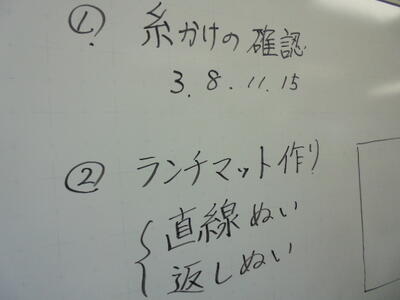 ① 糸かけの確認
3.8.11.15
② ランチマット作り
直線ぬい
返しぬい